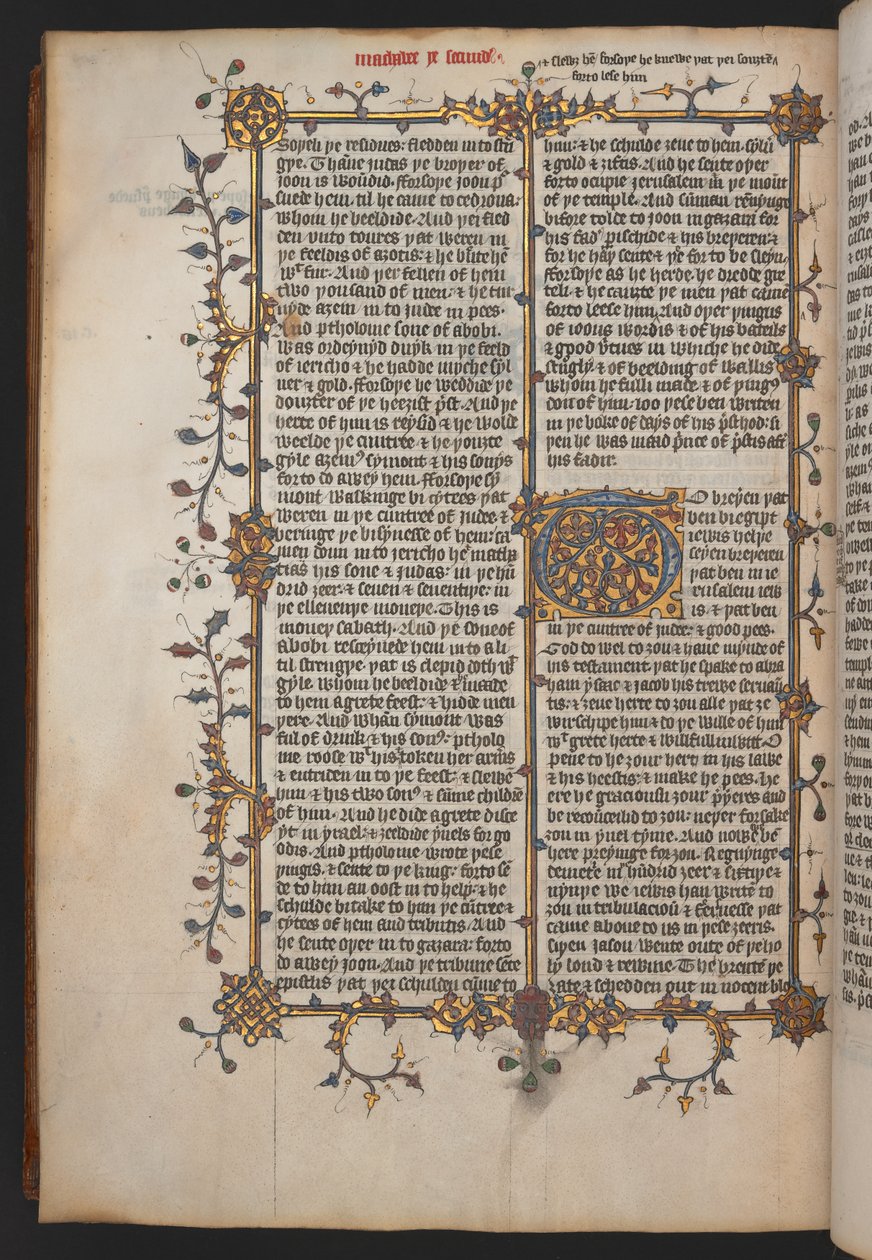 machabee ye secund
& slewȝ hē forsoye he knewe yat yei souȝtē
forto lese him
Soyeli ye residues: fledden in to strē
gye. Thāne judas ye broyer of
joon is woūdid. fforsoye joon p̄
suede hem, til he came to cedrona:
whom he beeldide. And yei fled
den vnto toures yat weren in
ye feeldis of azotis: & he brēte hē
wt fiir. And yer fellen of hem
two yousand of men: & he tur
nyde aȝein in to jude in pees.
And ptholome sone of abobi.
was ordeynyd duyk in ye feeld
of iericho & he hadde myche syl
uer & gold. fforsoye he weddide ye
douȝter of ye heeȝist p̄st. And ye
herte of him is reysid & he wolde
weelde ye cuntree & he youȝte
gyle aȝeinꝰ symont & his sonys
for to do awey hem. fforsoye sy
mont walkinge bi cytees yat
weren in ye cuntree of judee &
beringe ye bisynesse of hem: ca
men doun in to jericho he & mathat
tias his sone & judas: in ye hū
drid ȝeer & seuen & seuentiye: in
ye elleuenye moneye. This is
moneȝ sabath. And ye sone of
abobi resceyuede hem in to a li
til strengye. yat is clepid doth wt
gyle. whom he beeldide & made
to hem a grete feest: & hidde men
yere. And whan symont was
ful of drunk & his sonꝰ: ptholo
me roose wt his & token her arms
& entriden in to ye feest: & slewē
him & his two sonꝰ & sūme childrē
of him. And he dide a grete disce
yt in yrael: & ȝeeldide yuels for go
odis. And ptholome wrote yese
yingis. & sente to ye king: forto sē
de to him an oost in to help: & he
schulde bitake to him ye cūtree &
cytees of hem and tributis. And
he sente oyer in to gazara: forto
do awey joon. And ye tribune sēte
epistlis yat yei schulden cume to
him: & he schulde ȝeue to hem. sylū
& gold & ȝiftis. And he sente oyer
forto ocupie jerusalem in ye moūt
of ye temple. And sūman rennynge
bifore tolde to joon in gazara for
his fadˀ p̄ischide & his breyeren: &
for he hay sente & ye for to be sleyn.
fforsoye as he herde. he dredde gre
teli. & he cauȝte ye men yat came
forto leese him. And oyer yingus
of ioons wordis & of his bateils
& good v̄tues in whiche he dide
strūgly & of beelding of wallis
whom he fulli made & of yingꝰ
don of him: loo yese ben writen
in ye boke of dayes of his p̄sthod: si
yen he was maad p̄nce of p̄stis aftˀ
his fadir.
To breyen yat
ben bi egipt
iewis helye
seyen breyeren
yat ben in ie
rusalem iew
is: & yat ben
in ye cuntree of judee: & good pees.
God do wel to ȝou & haue mynde of
his testament. yat he spake to abra
ham ysaac & jacob his trewe seruaū
tis: & ȝeue herte to ȝou alle yat ȝe
wirschipe him & to ye wille of him
wt grete herte & willful inwitt. O
pene he ȝour hert in his lawe
& his heestis: & make he pees. He
ere he graciousli ȝour p̄yeres and
be recounceilid to ȝou: neyer forsake
ȝou in yuel tyme. And nowe we bē
here preyinge for ȝou. Regnynge
demetre in hūdrid ȝeer & sixtiye &
nynye we iewis han writē to
ȝou in tribulacioū & feersnesse yat
came aboue to us in yese ȝeeris.
siyen jason wente oute of ye ho
ly lond & rewme. The brente ye
ȝate & schedden out innocent blo